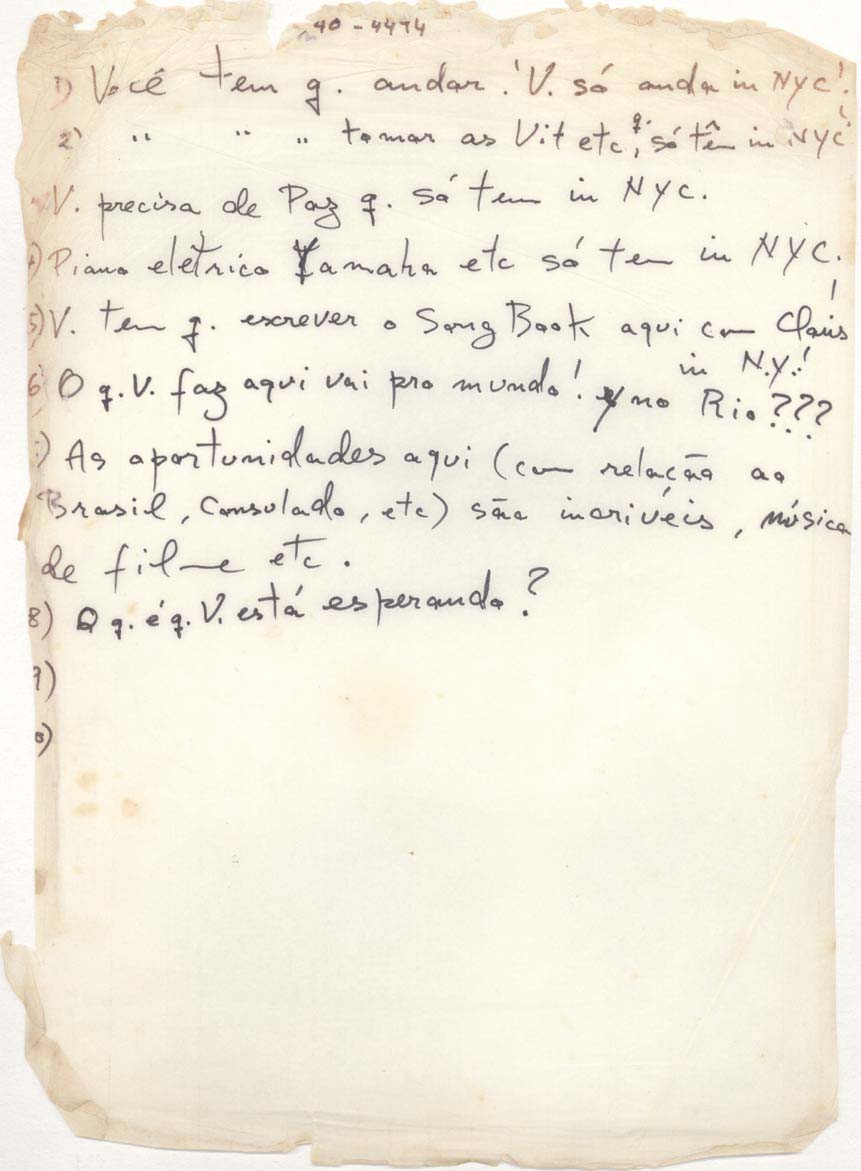 40-4474
1) Você tem q. andar! V. só anda in NYC!
2) " " " tomar as Vit etc, q. só têm in NYC!
V. precisa de Paz q. só tem in NYC.
4) Piano elétrico Yamaha etc só tem in NYC.
5) V. tem q. escrever o Song Book aqui com Claus!
in N.Y.!
6) O q. V. faz aqui vai pro mundo! no Rio???
7) As oportunidades aqui (com relação ao
Brasil, consulado, etc) são incrivéis, música
de filme etc.
8) O q. é q. V. está esperando?
9)
10)